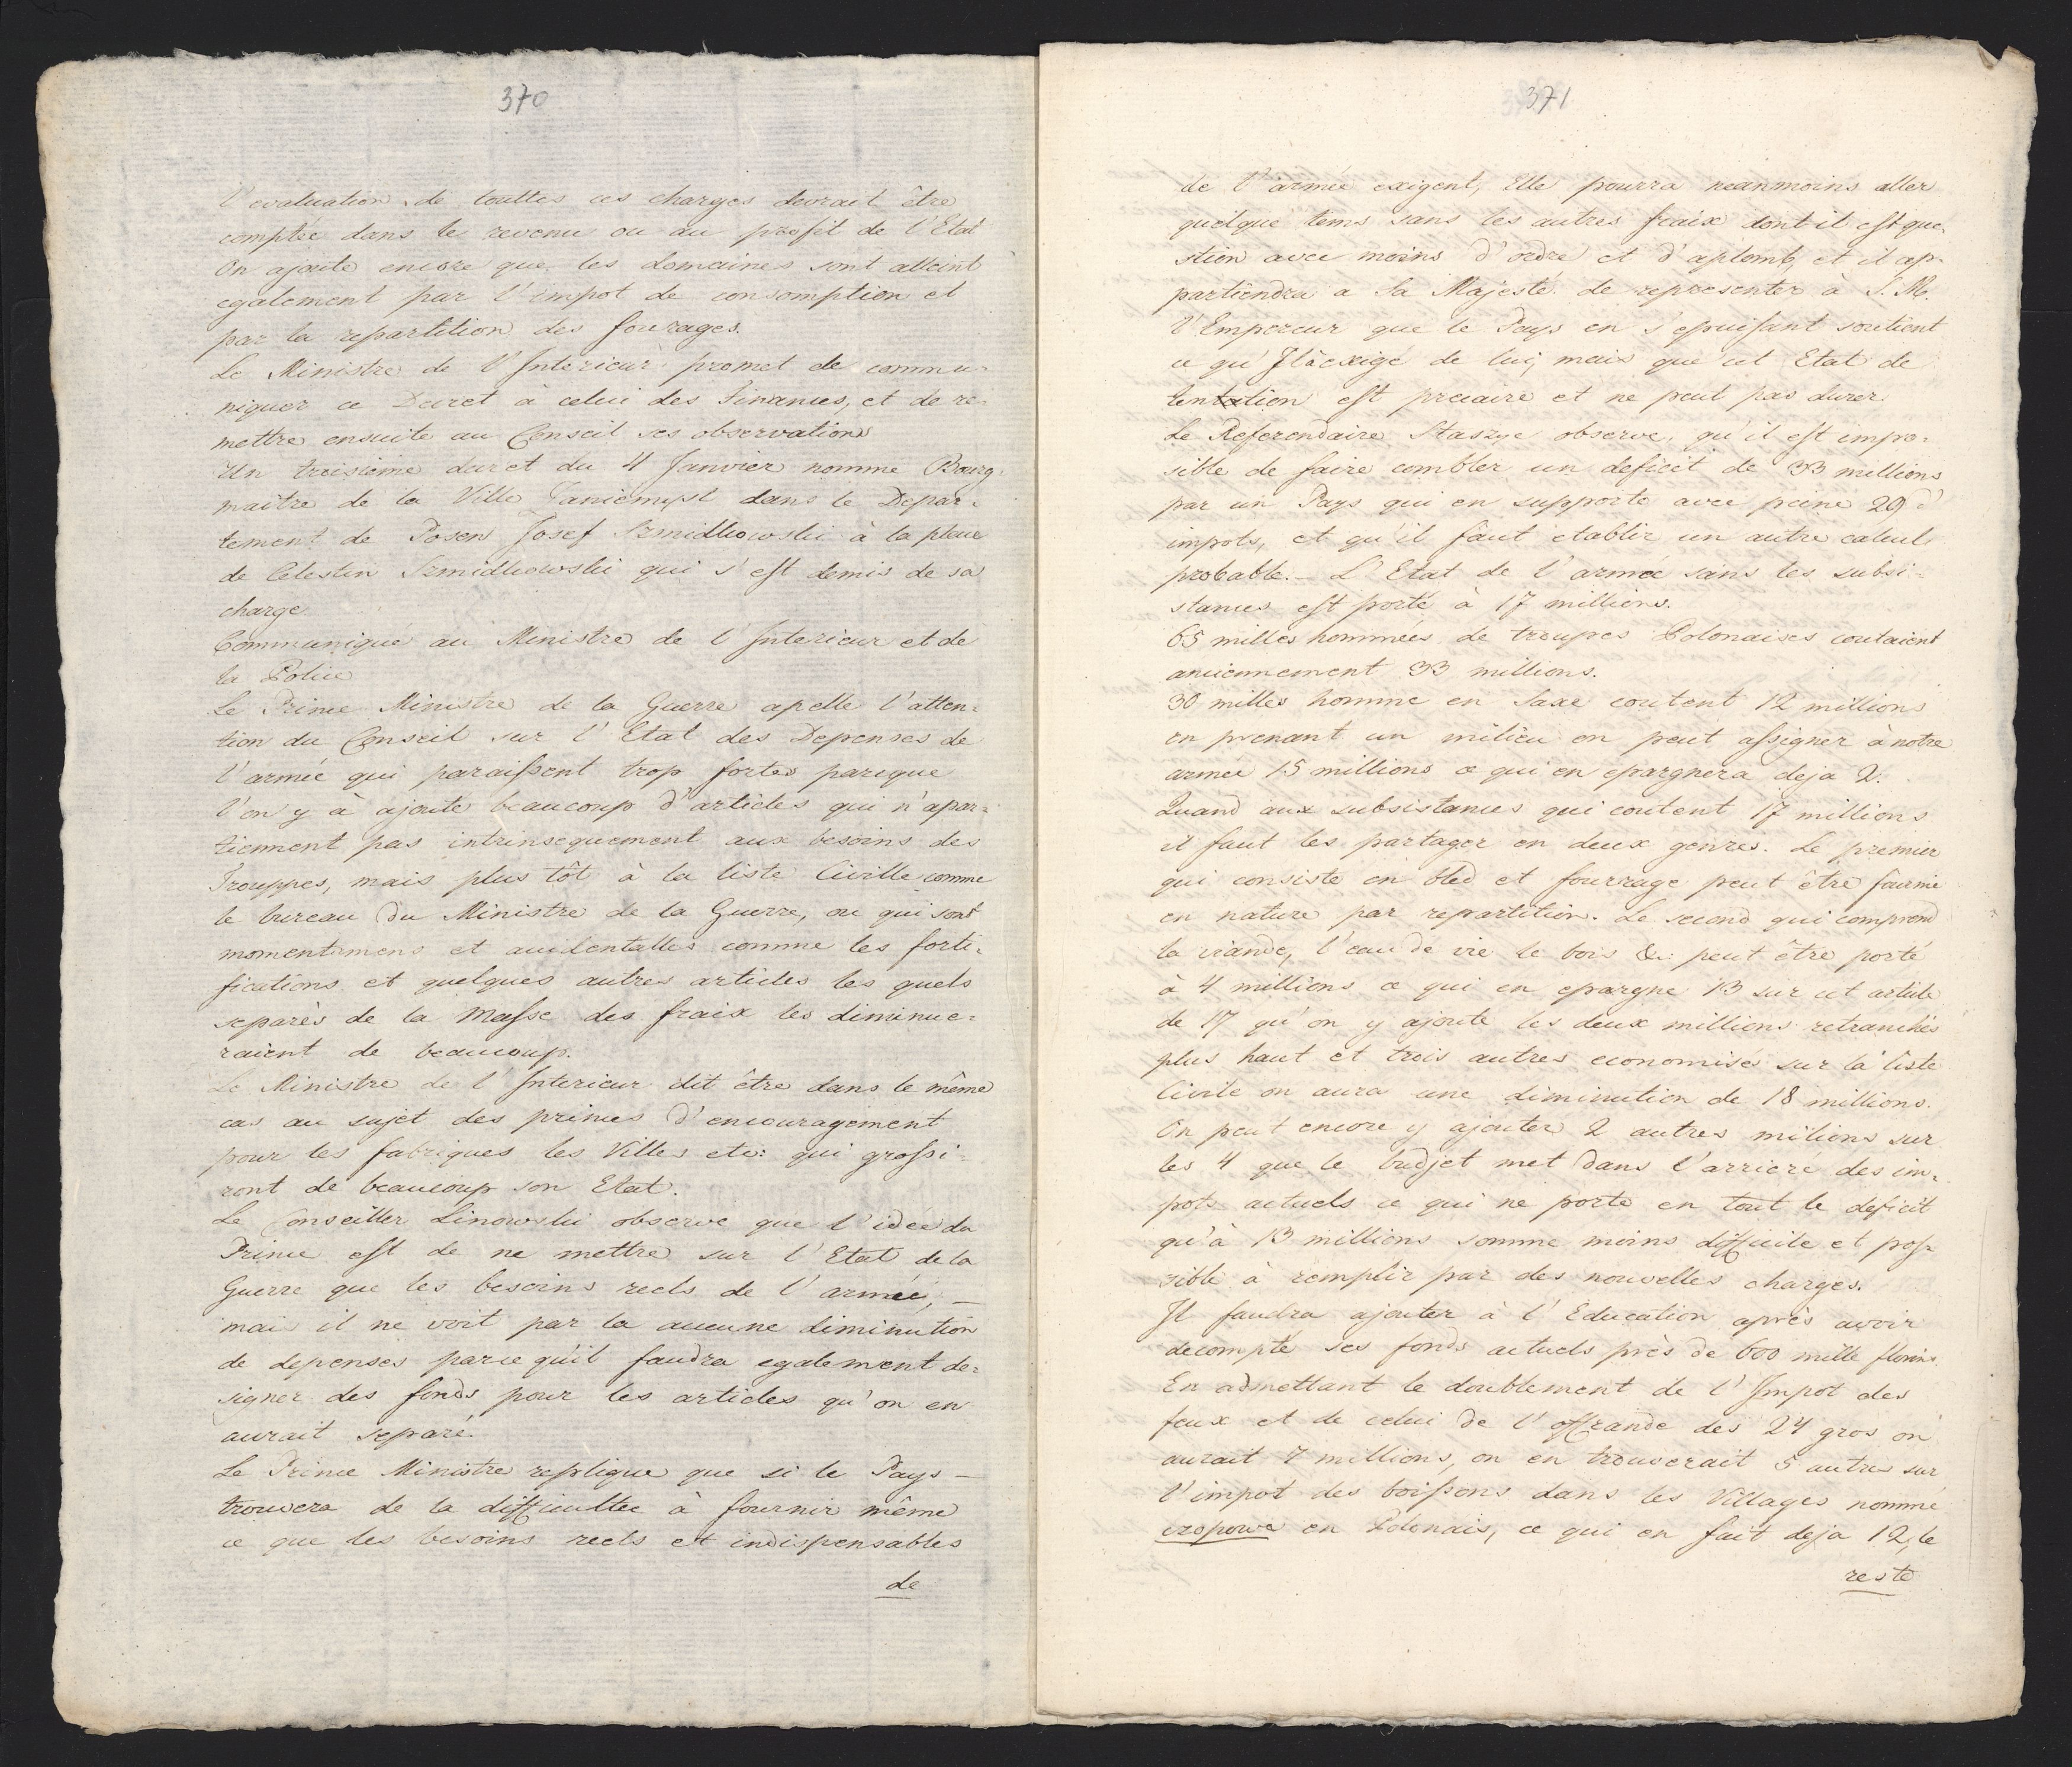 370
l'evaluation de touttes ces charges devrait être
comptée dans le revenu ou au profit de l'Etat
On ajoute encore que les domaines sont atteint
egalement par l'impot de consomption et
par la repartition des fourages.
Le Ministre de l'Interieur promet de commu-
niquer ce Decret à celui des Finances, et de re-
mettre ensuite au Conseil ses observations
Un troisième decret du 4 Janvier nomme Bourg-
maitre de la Ville Zaniemysl dans le Depar-
tement de Posen Josef Szmidkowski à la place
de Celestin Szmidkowski qui s'est demis de sa
charge
Communiqué au Ministre de l'Interieur et de
la Police
Le Prince Ministre de la Guerre apelle l'atten-
tion du Conseil sur l'Etat des Depenses de
l'armée qui paraissent trop fortes parcque
l'on y à ajouté beaucoup d'articles qui n'apar-
tiennent pas intrinsequement aux besoins des
Trouppes, mais plus tôt à la liste Civille comme
le bureau du Ministre de la Guerre, ou qui sont
momentamens et accidentalles comme les forti-
fications et quelques autres articles les quels
separès de la Masse des fraix les diminue-
raient de beaucoup.
Le Ministre de l'Interieur dit être dans le même
cas au sujet des primes d'encouragement
pour les fabriques les Villes etc: qui grossi-
ront de beaucoup son Etat.
Le Conseiller Linowski observe que l'idée du
Prince est de ne mettre sur l'Etat de la
Guerre que les besoins reels de l'armée, —
mais il ne voit par la aucune diminution
de depenses parce qu'il faudra egalement de-
signer des fonds pour les articles qu'on en
aurait separé.
Le Prince Ministre replique que si le Pays —
trouvera de la difficultee à fournir même
ce que les besoins reels et indispensables
de
371
de l'armée exigent, Elle pourra neanmoins aller
quelque tems sans les autres fraix dont il est que-
stion avec moins d'ordre et d'aplomb, et il ap-
partiendra a Sa Majesté de representer à S. M.
l'Empereur que le Pays en s'epuisant soutient
ce qu'Il à exigé de lui, mais que cet Etat de
tention est precaire et ne peut pas durer.
Le Referendaire Staszyc observe, qu'il est impo-
sible de faire combler un deficit de 33 millions
par un Pays qui en supporte avec peine 29 d'
impots, et qu'il faut etablir un autre calcul
probable. — L'Etat de l'armée sans les subsi-
stances est porté à 17 millions.
65 milles hommées de troupes Polonaises coutaient
anciennement 33 millions.
30 milles homme en Saxe coutent 12 millions
en prenant un milieu on peut assigner à notre
armée 15 millions ce qui en epargnera deja 2.
Quand aux subsistances qui coutent 17 millions
il faut les partager en deux genres. Le premier
qui consiste en bled et fourrage peut être fournie
en nature par repartition. Le second qui comprend
la viande, l'eau de vie le bois &c. peut être porté
à 4 millions ce qui en epargne 13 sur cet article
de 17 qu'on y ajoute les deux millions retranchés
plus haut et trois autres economisés sur la liste
Civile on aura une diminution de 18 millions.
On peut encore y ajouter 2 autres milions sur
les 4 que le budjet met dans l'arrieré des im-
pots actuels ce qui ne porte en tout le deficit
qu'à 13 millions somme moins difficile et pos-
sible à remplir par des nouvelles charges.
Il faudra ajouter à l'Education après avoir
decompté ses fonds actuels près de 600 mille florins
En admettant le doublement de l'Impot des
feux et de celui de l'offrande des 24 gros on
aurait 7 millions, on en trouverait 5 autres sur
l'impot des boissons dans les Villages nommé
czopowe en Polonais, ce qui en fait deja 12, le
reste